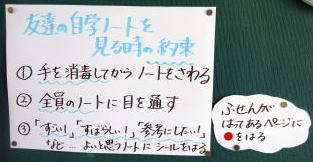 友達の自学ノートを
見る時の約束
① 手を消毒してからノートをさわる
② 全員のノートに目を通す
③「すごい!」「すばらしい!」「参考にしたい!」
など…よいと思うノートにシールをはる
ふせんが
はってあるページに
●をはる